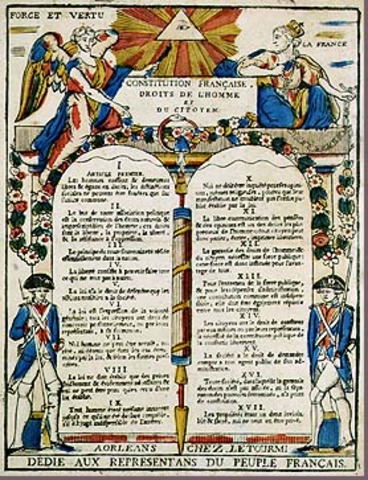 FORCE ET VERTU
LA FRANCE
CONSTITUTION FRANÇAISE.
DROITS DE L'HOMME
ET
DU CITOYEN.
I
ARTICLE PREMIER.
Les hommes naissent & demeurent
libres & égaux en droits, les distinctions
sociales ne peuvent être fondées que sur
l'utilité commune.
II
Le but de toute association politique
est la conservation des droits naturels &
imprescriptibles de l'homme; ces droits
sont la liberté, la propriété, la sûreté, &
la résistance à l'oppression.
III
Le principe de toute souveraineté réside
essentiellement dans la nation.
IV
La liberté consiste à pouvoir faire tout
ce qui ne nuit pas à autrui.
V
La loi n'a le droit de défendre que les
actions nuisibles à la société.
VI
La loi est l'expression de la volonté
générale; tous les citoyens ont droit de
concourir personnellement, ou par leurs
représentans, à sa formation.
VII
Nul homme ne peut être accusé,
VIII
La loi ne doit établir que des peines
strictement & évidemment nécessaires &
IX
Tout homme étant présumé innocent
X
Nul ne doit être inquiété pour ses opinions,
XI
La libre communication des pensées
& des opinions est un des droits les plus
précieux de l'homme; tout citoyen peut
XII
La garantie des droits de l'homme & du
citoyen nécessite une force publique;
cette force est donc instituée pour l'avantage
de tous.
XIII
Pour l'entretien de la force publique,
& pour les dépenses d'administration,
une contribution commune est indispensable;
XIV
Les citoyens ont le droit de constater
par eux mêmes ou par leurs représentans,
la nécessité de la contribution publique
XV
La société a le droit de demander
compte à tout agent public de son administration.
XVI
Toute société, dans laquelle la garantie
des droits n'est pas assurée,
XVII
Les propriétés étant un droit inviolable
& sacré, nul ne peut en être privé.
A ORLEANS CHEZ LETOURMI
DÉDIÉ AUX REPRESENTANS DU PEUPLE FRANÇAIS.